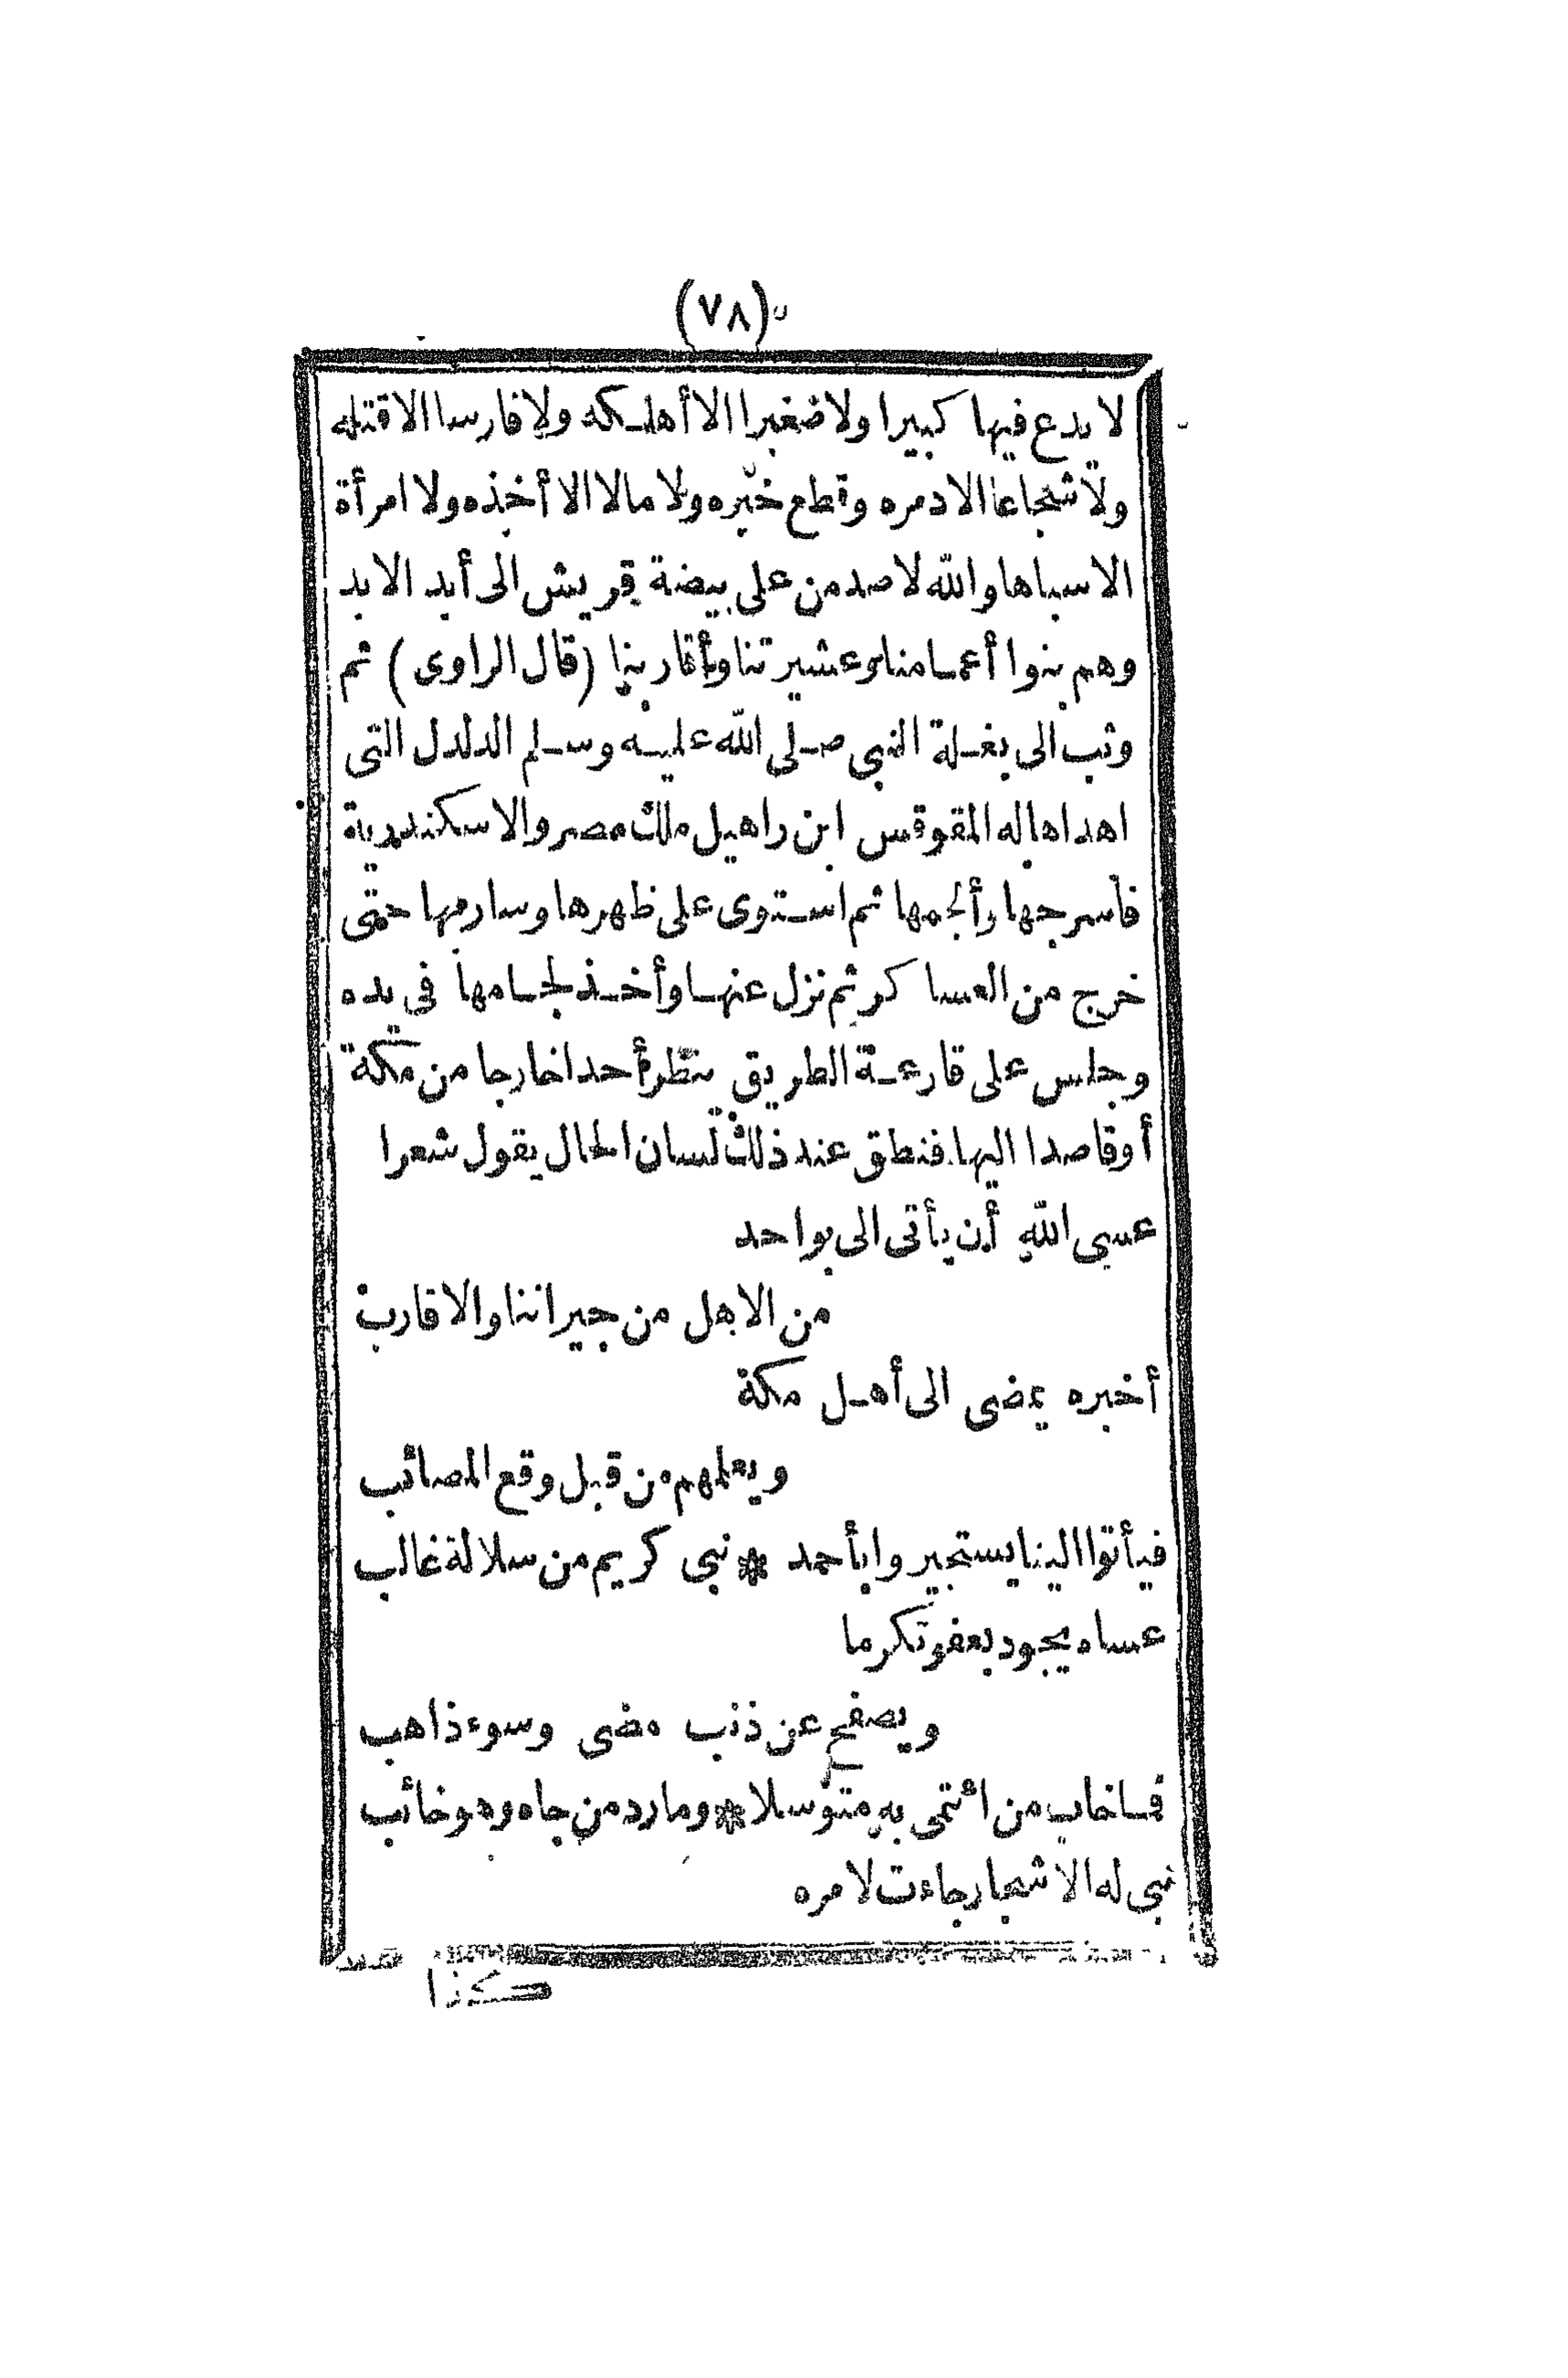 (٧٨)
لا يدع فيها كبيرا ولا صغيرا الا أهلكه ولا فارسا الا قتله
ولا شجاعا الا دمره وقطع خبره ولا مالا الا أخذه ولا امرأة
الا سباها والله لا صدمن على بيضة قريش الى أبد الابد
وهم بنوا أعمامنا وعشيرتنا وأقاربنا (قال الراوى) ثم
وثب الى بغلة النبي صلى الله عليه وسلم الدلدل التى
اهداها له المقوقس ابن راهيل ملك مصر والاسكندرية
فأسرجها وألجمها ثم استوى على ظهرها وسار بها حتى
خرج من العساكر ثم نزل عنها وأخذ لجامها فى يده
وجلس على قارعة الطريق ينظر أحدا خارجا من مكة
أو قاصدا اليها فنطق عند ذلك لسان الحال يقول شعرا
عسى الله أن يأتى الى بواحد
من الاهل من جيراننا والاقارب
أخبره يمضى الى أهل مكة
ويعلمهم من قبل وقع المصائب
فيأتوا الينا يستجيروا بأحمد * نبى كريم من سلالة غالب
عساه يجود بعفو تكرما
ويصفح عن ذنب مضى وسوء ذاهب
فما خاب من ائتمى به متوسلا * وما رد من جاه وهو خائب
نبى له الاشجار جاءت لامره
كذا